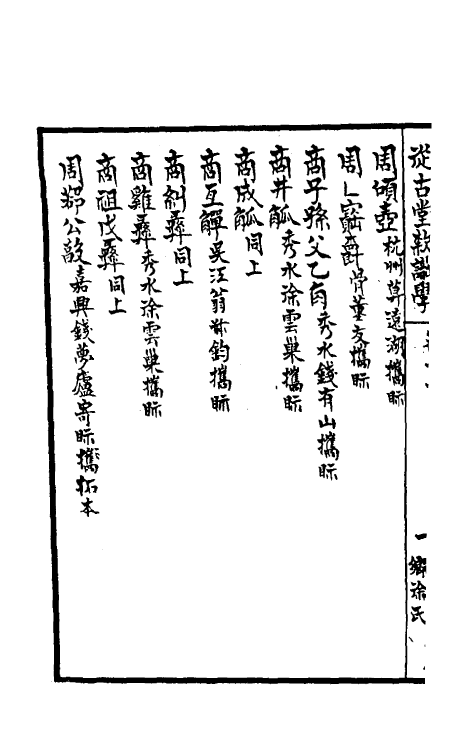 從古堂款識學
一
鄉徐氏
周頌壺杭州葛遠湖攜眎
周乚寶爵骨董友攜眎
商子孫父乙卣秀水錢有山攜眎
商井觚秀水徐雲巢攜眎
商成觚同上
商互觶吳江翁叔鈞攜眎
商糾彝同上
商雞彝秀水徐雲巢攜眎
商祖戊彝同上
周郑公敦嘉興錢夢廬寄眎攜拓本